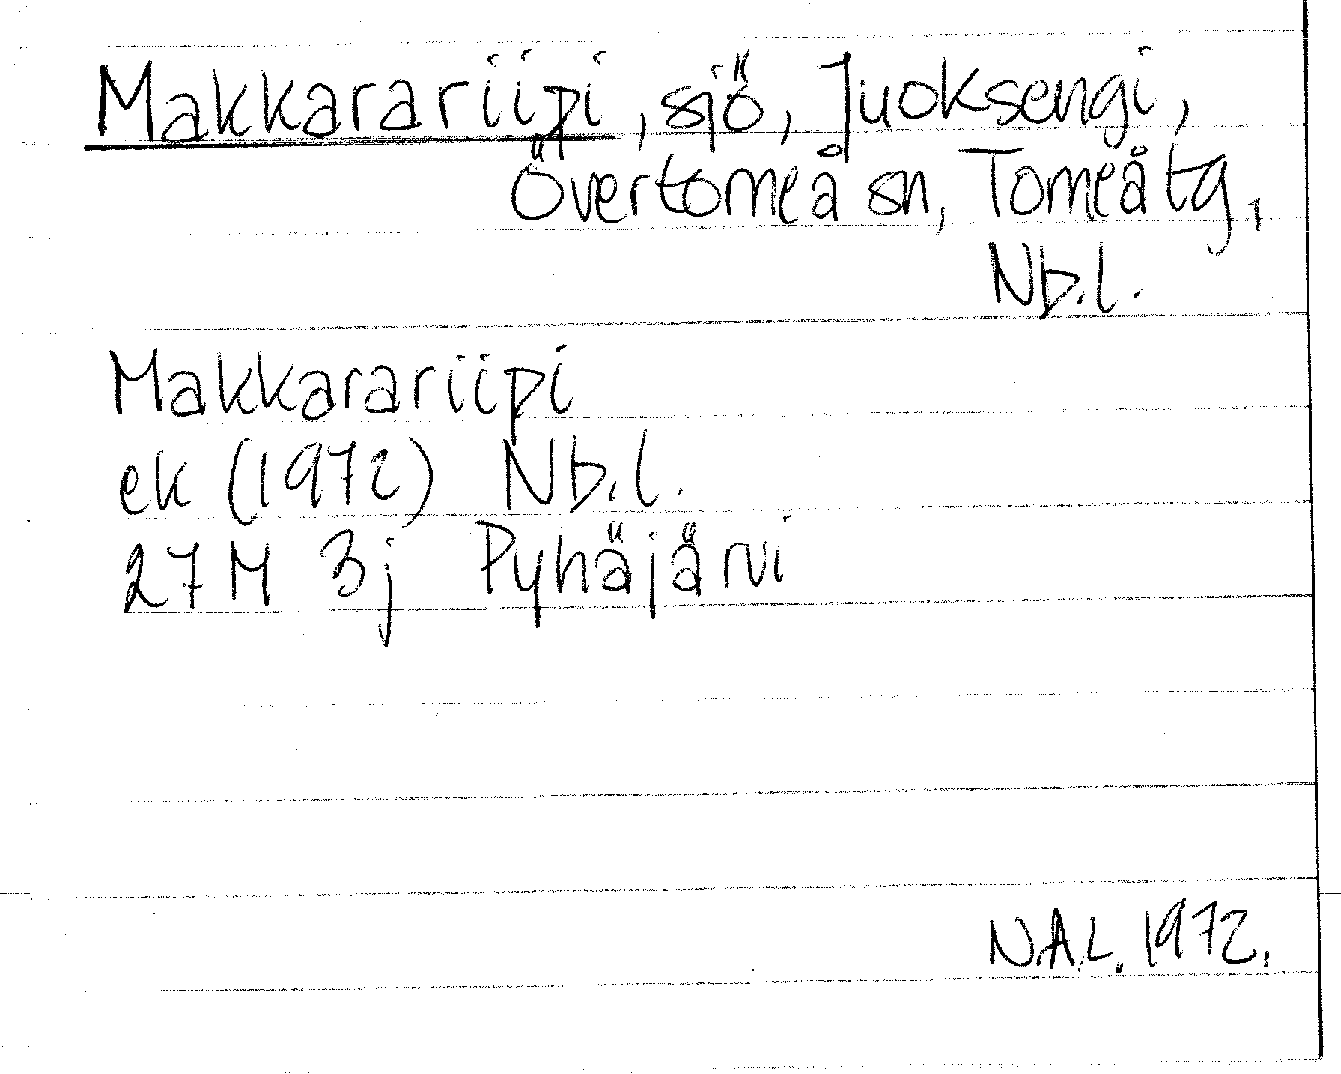 Makkarariipi, sjö, Juoksengi,
Övertorneå sn, Torneå tg,
Nb.l.
Makkarariipi
ek (1972) Nb.l.
27M 3j Pyhäjärvi
N.A.L. 1972.